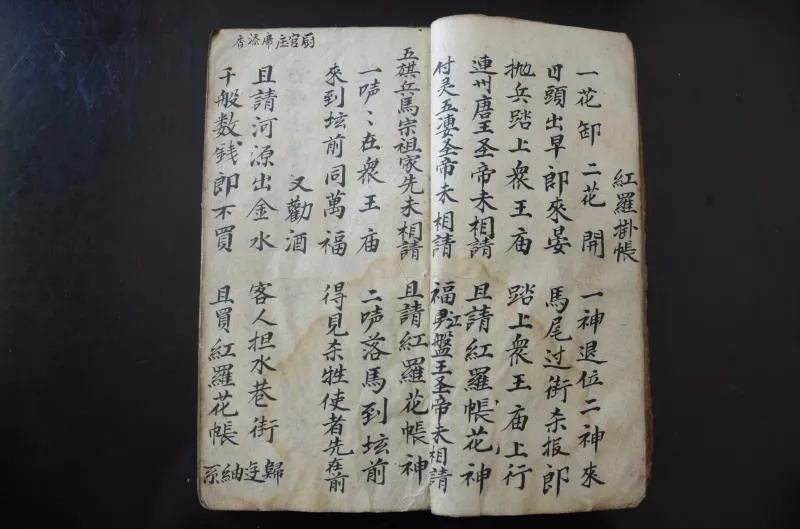 紅羅掛帳
一花卸二花開 一神退位二神來
日頭出早郎來晏 馬尾过街杀报郎
抛兵踏上衆王庙 踏上衆王庙上行
連州唐王圣帝未相請 且請紅羅帳花神
付灵五婆圣帝未相請 福江盤王圣帝未相請
五旗兵馬宗祖家先未相請 且請紅羅花帳神
一声〻在衆王庙 二声落馬到坛前
來到坛前同萬福 得見杀牲使者先在前
又勸酒
且請河源出金水 客人担水巷街歸
千般数錢郎不買 且買紅羅花帳
厨官庄席添香